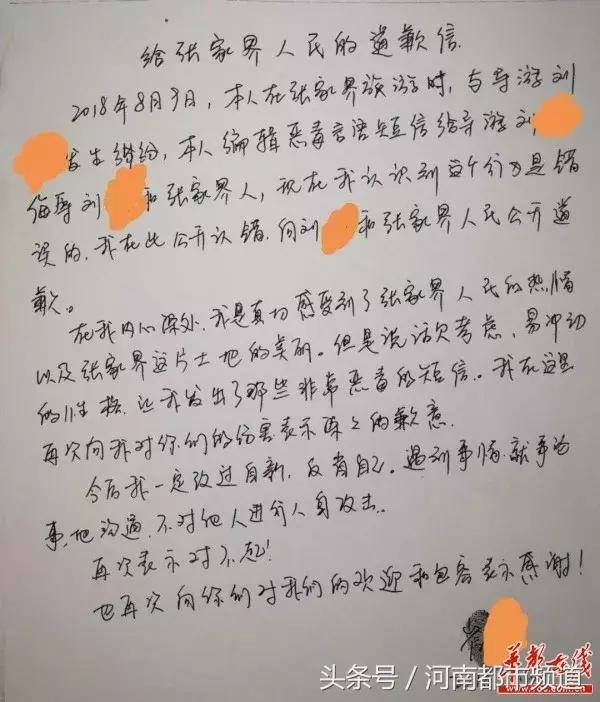 给张家界人民的道歉信
2018年8月9日，本人在张家界旅游时，与导游刘
发生纠纷，本人编辑恶毒言语短信给导游刘
侮辱刘 和张家界人，现在我认识到这个行为是错
误的，我在此公开认错，向刘 和张家界人民公开道
歉。
在我内心深处，我是真切感受到了张家界人民的热情
以及张家界这片土地的美丽。但是说话欠考虑，易冲动
的性格，让我发出了那些非常恶毒的短信。我在这里
再次向我对你们的伤害表示深深的歉意。
今后我一定改过自新，反省自己。遇到事情就事论
事地沟通，不对他人进行人身攻击。
再次表示对不起！
也再次向你们对我们的欢迎和包容表示感谢！
头条号／河南都市频道
华声在线